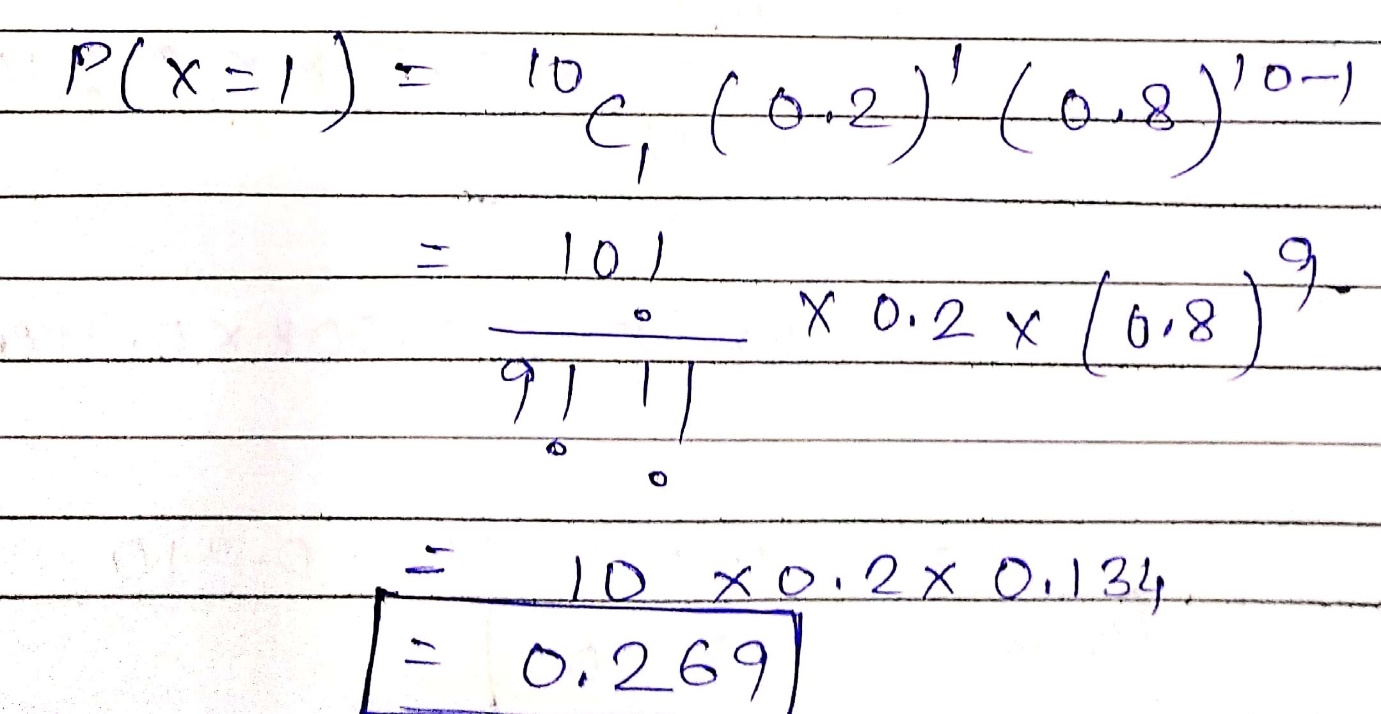 P(x=1) = ¹⁰C₁ (0.2)¹ (0.8)¹⁰⁻¹
= 10! / 9! 1! × 0.2 × (0.8)⁹
= 10 × 0.2 × 0.134
= 0.269